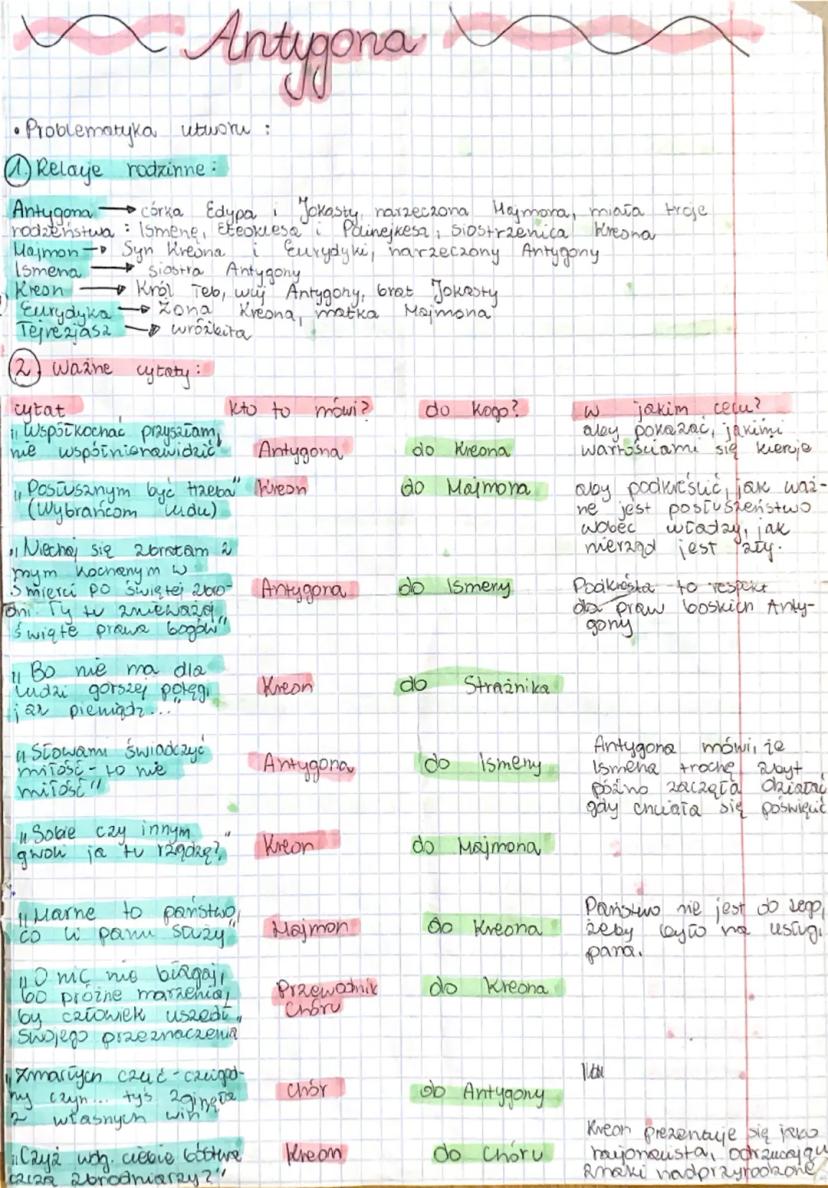 Antygona
• Problematyka utworu :
1. Relacje rodzinne :
Antygona → córka Edypa i Jokasty, narzeczona Hajmona, miała troje
rodzeństwa : Ismenę, Eteoklesa i Polinejkesa, siostrzenica Kreona
Hajmon → Syn Kreona i Eurydyki, narzeczony Antygony
Ismena → siostra Antygony
Kreon → Król Teb, wuj Antygony, brat Jokasty
Eurydyka → Żona Kreona, matka Hajmona
Tejrezjasz → wróżbita
2. Ważne cytaty :
cytat kto to mówi? do kogo? w jakim celu?
„Współkochać przyszłam, nie współnienawidzić" Antygona do Kreona aby pokazać, jakimi
wartościami się kieruje
„Posłusznym być trzeba" Kreon do Hajmona aby podkreślić, jak waż-
(Wybrańcom ludu) ne jest posłuszeństwo
wobec władzy, jak
nierząd jest zły.
„Niechaj się zbratam z
mym kochanym w
śmierci po świętej zbro-
dni. Ty tu znieważaj
święte prawa bogów" Antygona do Ismeny Podkreśla to respekt
dla praw boskich Anty-
gony
„Bo nie ma dla
ludzi gorszej potęgi,
jak pieniądz..." Kreon do Strażnika
„Słowami świadczyć
miłość - to nie
miłość" Antygona do Ismeny Antygona mówi, że
Ismena trochę zbyt
późno zaczęła działać
gdy chciała się poświęcić
„Sobie czy innym
gwoli ja tu rządzę?" Kreon do Hajmona
„Marne to państwo,
co li panu służy" Hajmon do Kreona Państwo nie jest do tego,
żeby było na usługi
pana.
„O nic nie błagaj,
bo próżne marzenia,
by człowiek uszedł
swojego przeznaczenia" Przewodnik
Chóru do Kreona
„Zmarłych czcić - czcigod-
ny czyn... tyś zginęła
z własnych win" Chór do Antygony
„Czyż wdg. ciebie bóstwa
czczą zbrodniarzy?" Kreon do Chóru Kreon prezentuje się jako
odrzucający
znaki nadprzyrodzone